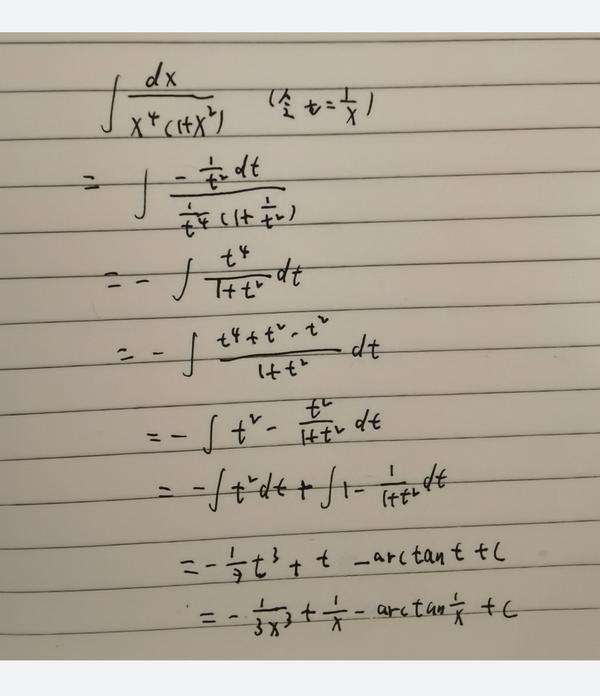 ∫ dx / x⁴(1+x²) (令 t = 1/x)
= ∫ -1/t² dt / 1/t⁴ (1+1/t²)
= - ∫ t⁴/1+t² dt
= - ∫ t⁴+t²-t²/1+t² dt
= - ∫ t² - t²/1+t² dt
= -∫t²dt + ∫1 - 1/1+t² dt
= -1/3 t³ + t - arctan t + C
= - 1/3x³ + 1/x - arctan 1/x + C